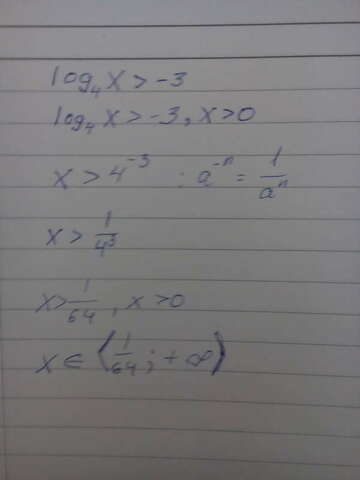 log₄ x > -3
log₄ x > -3, x > 0
x > 4⁻³ : a⁻ⁿ = 1/aⁿ
x > 1/4³
x > 1/64, x > 0
x ∈ (1/64; +∞)